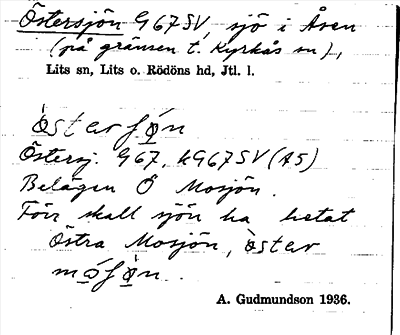 Östersjön G67SV, sjö i Åsen
(på gränsen t. Kyrkås sn),
Lits sn, Lits o. Rödöns hd, Jtl. l.
òstarʃǿn
Östersj. G67, kG67SV (A5)
Belägen Ö Mosjön.
Förr skall sjön ha hetat
Östra Mosjön, òstar
móʃø̀n.
A. Gudmundson 1936.